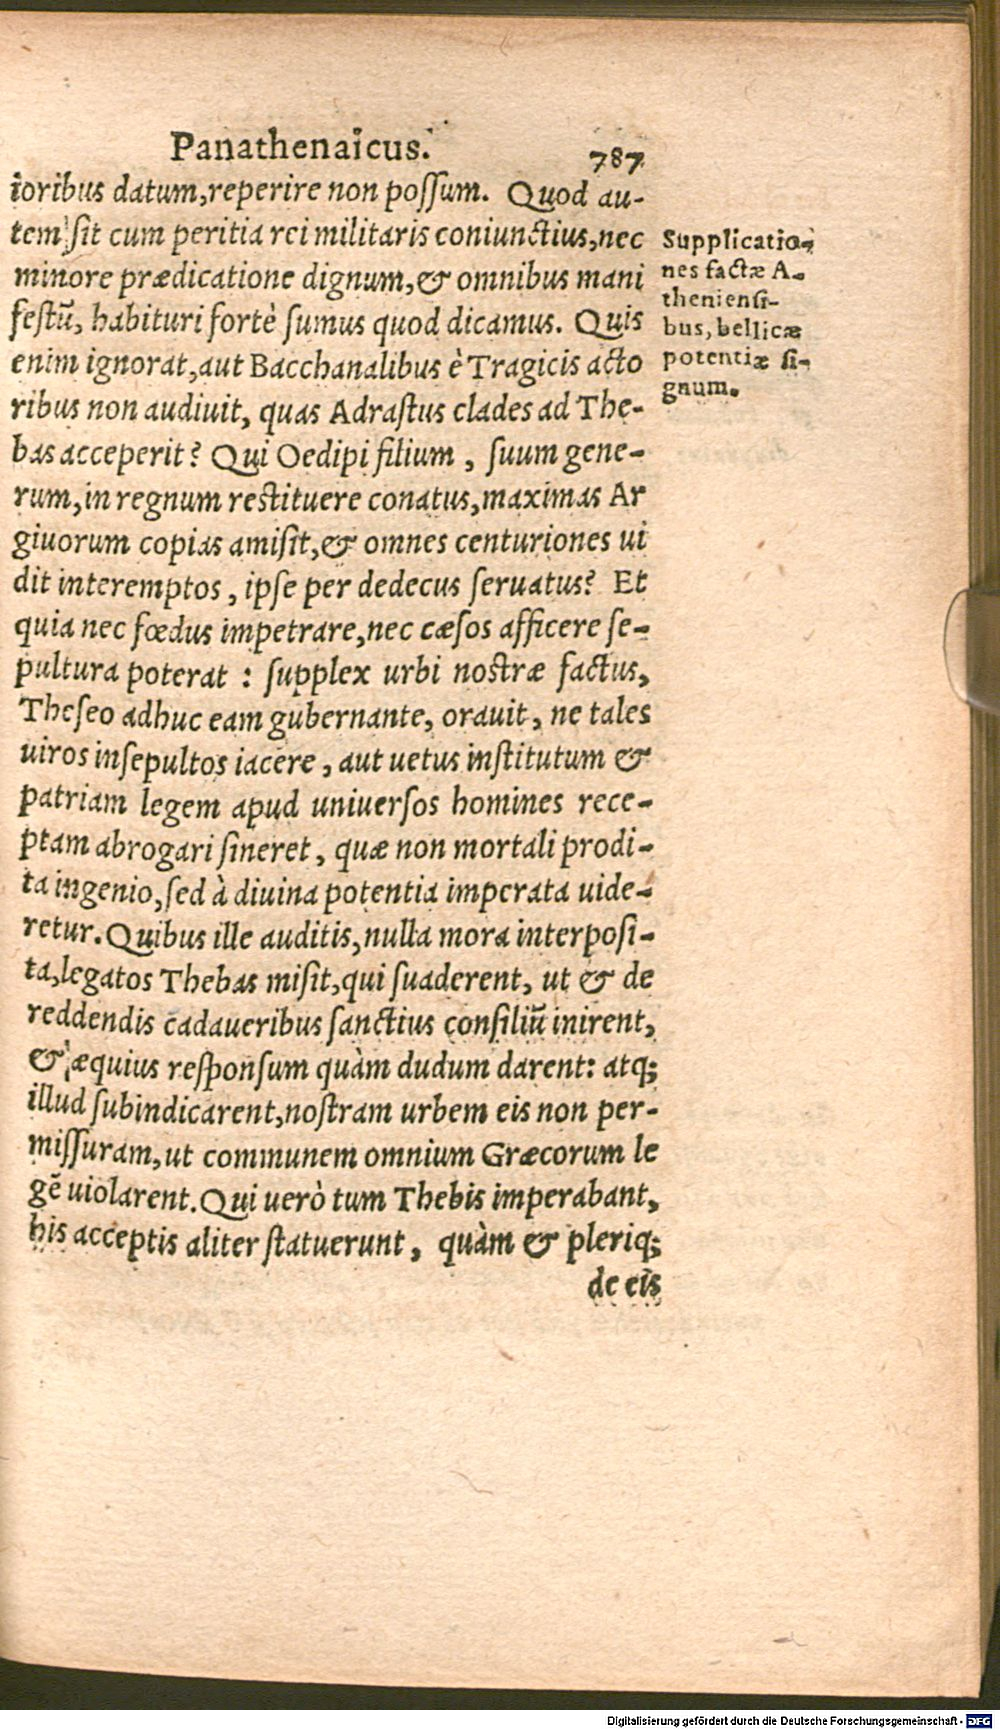 Panathenaicus. 787
ioribus datum, reperire non possum. Quod au-
tem sit cum peritia rei militaris coniunctius, nec
minore prædicatione dignum, & omnibus mani
festũ, habituri fortè sumus quod dicamus. Quis
enim ignorat, aut Bacchanalibus è Tragicis acto
ribus non audiuit, quas Adrastus clades ad The-
bas acceperit? Qui Oedipi filium, suum gene-
rum, in regnum restituere conatus, maximas Ar
giuorum copias amisit, & omnes centuriones ui
dit interemptos, ipse per dedecus seruatus? Et
quia nec fœdus impetrare, nec cæsos afficere se-
pultura poterat : supplex urbi nostræ factus,
Theseo adhuc eam gubernante, orauit, ne tales
uiros insepultos iacere, aut uetus institutum &
patriam legem apud uniuersos homines rece-
ptam abrogari sineret, quæ non mortali prodi-
ta ingenio, sed à diuina potentia imperata uide-
retur. Quibus ille auditis, nulla mora interposi-
ta, legatos Thebas misit, qui suaderent, ut & de
reddendis cadaueribus sanctius consiliũ inirent,
& æquius responsum quàm dudum darent: atq;
illud subindicarent, nostram urbem eis non per-
missuram, ut communem omnium Græcorum le
gẽ uiolarent. Qui uerò tum Thebis imperabant,
his acceptis aliter statuerunt, quàm & pleriq;
de eis
Supplicatio-
nes factæ A-
theniensi-
bus, bellicæ
potentiæ si-
gnum.
Digitalisierung gefördert durch die Deutsche Forschungsgemeinschaft - DFG